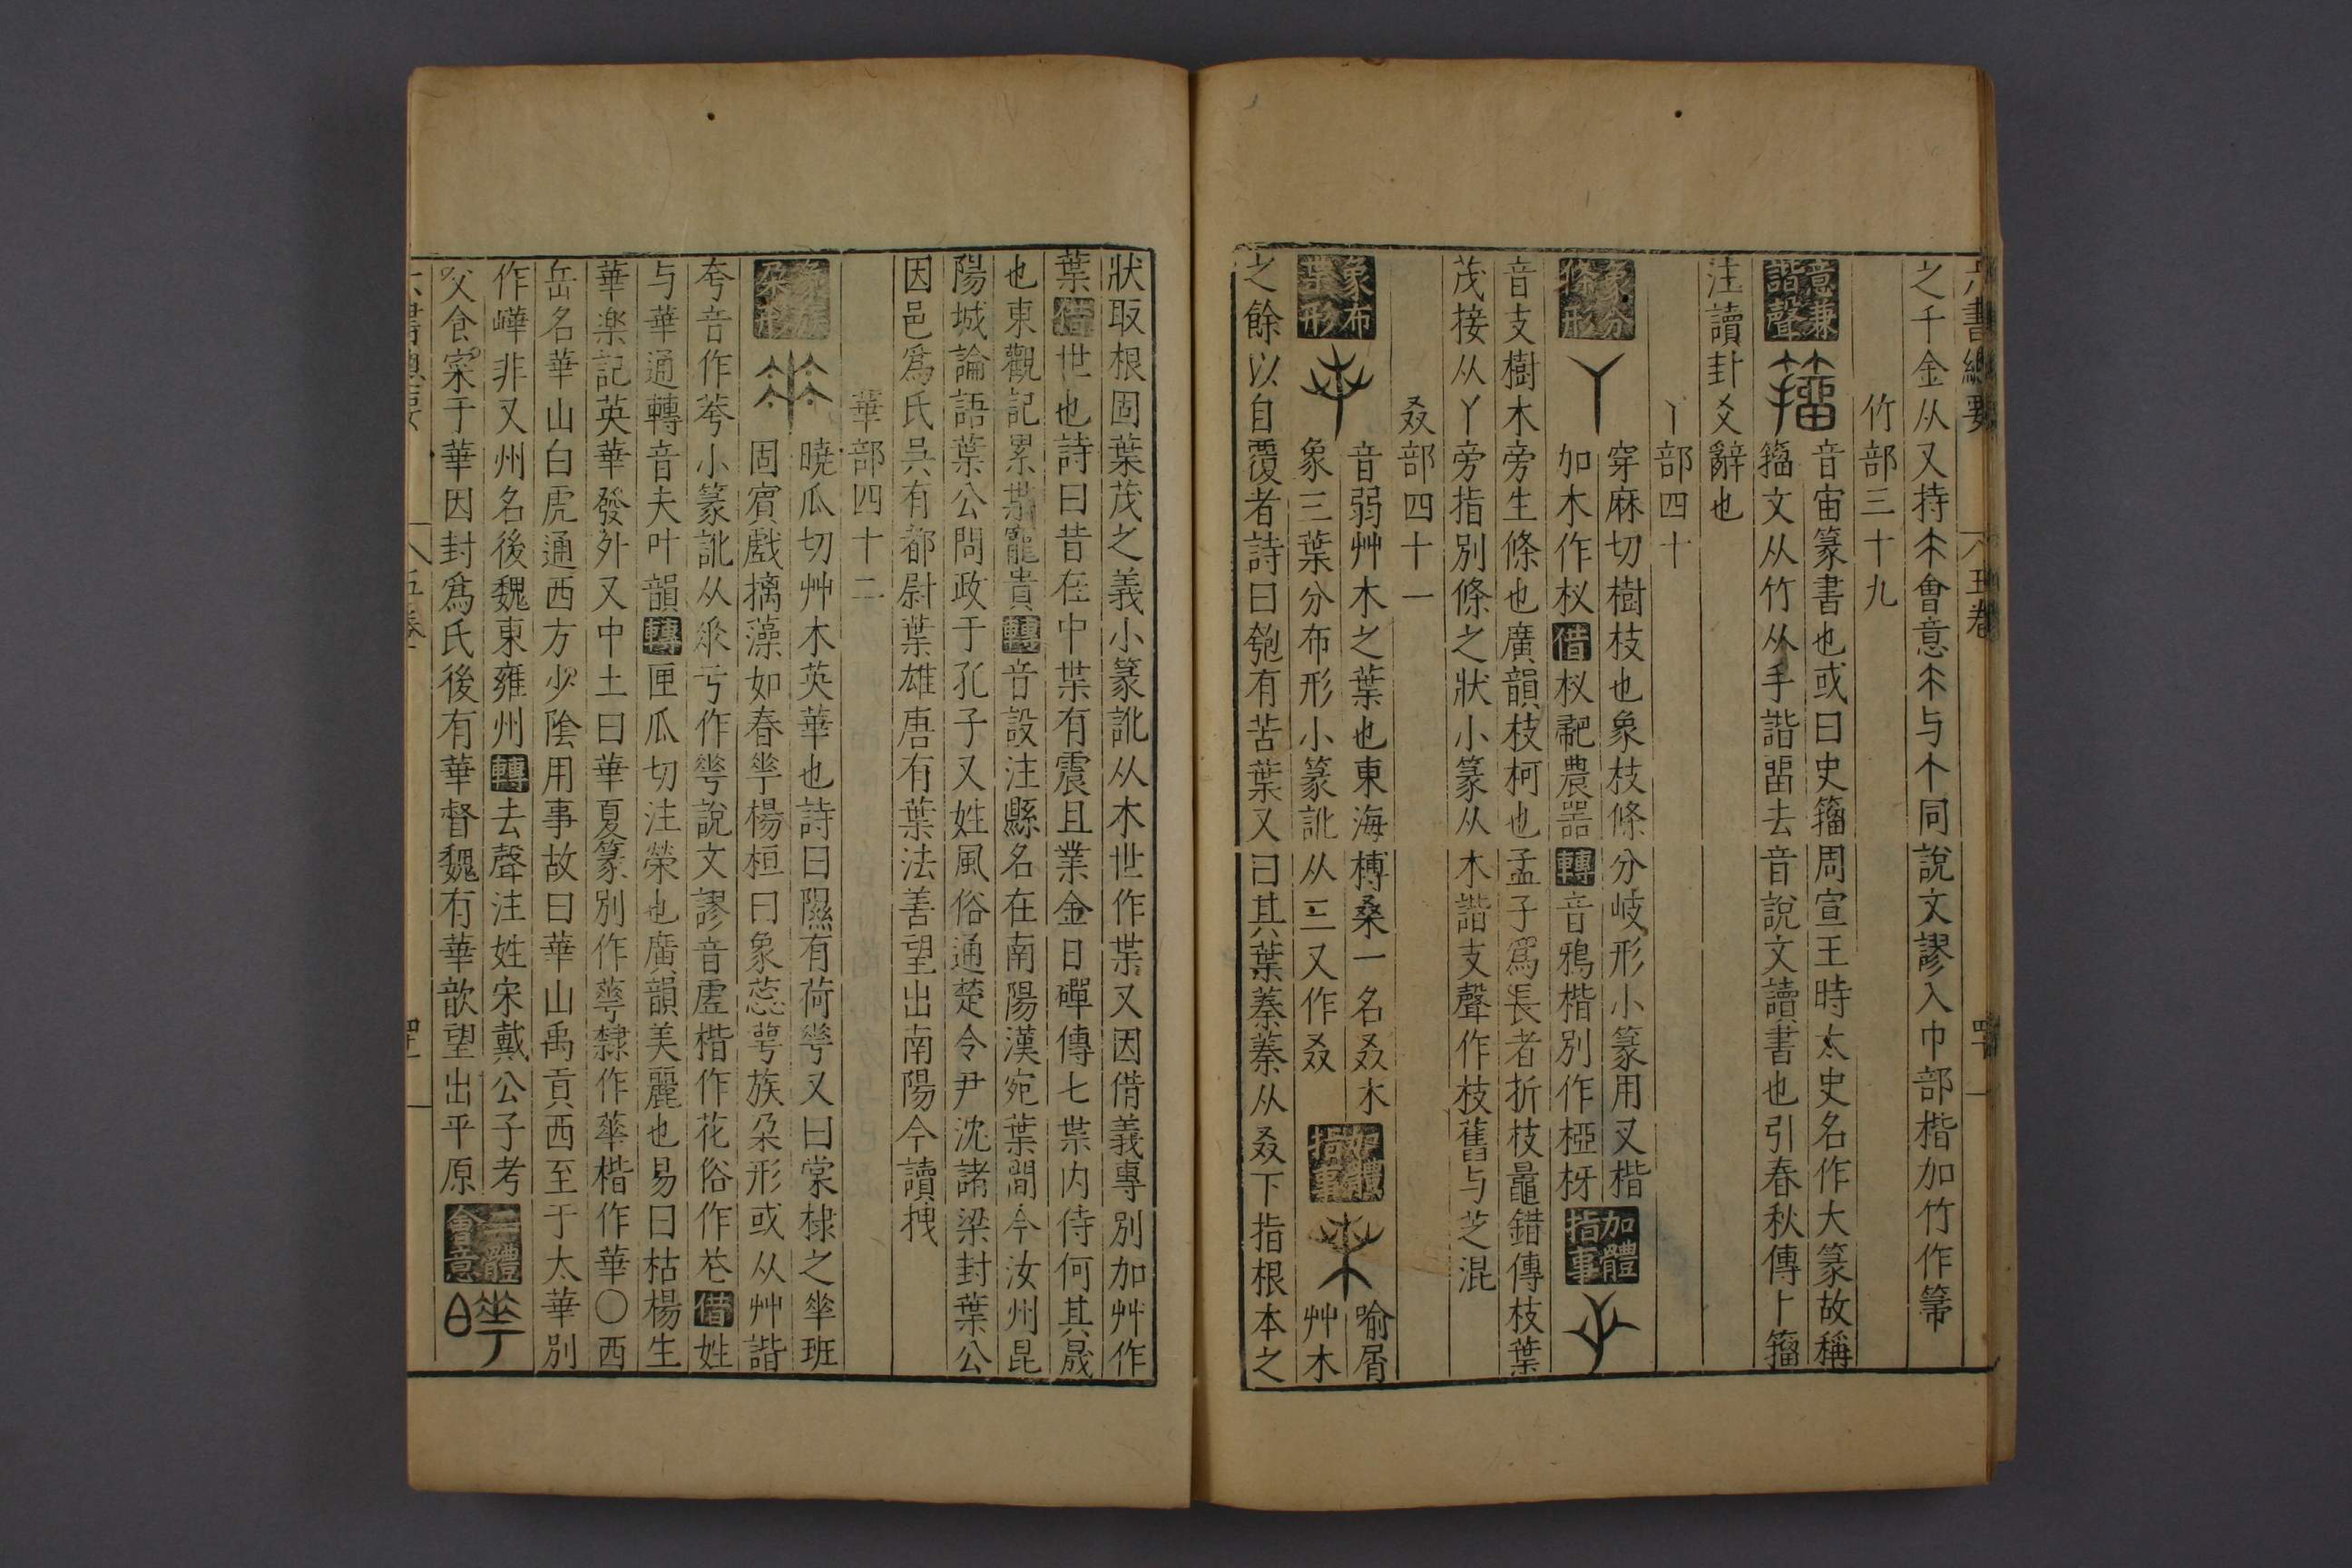 六書總要
五卷
之千金从又持朩會意朩与个同說文謬入巾部楷加竹作箒
竹部三十九
意兼諧聲
音宙篆書也或曰史籀周宣王時太史名作大篆故稱
籀文从竹从手諧畱去音說文讀書也引春秋傳卜籀
注讀卦爻辭也
丫部四十
象分條形
穿麻切樹枝也象枝條分岐形小篆用叉楷
加木作杈借杈䎱農噐轉音鴉楷別作椏枒
加體指事
音支樹木旁生條也廣韻枝柯也孟子爲長者折枝鼂錯傳枝葉
茂接从丫旁指別條之狀小篆从木諧支聲作枝舊与芝混
叒部四十一
象布葉形
音弱艸木之葉也東海榑桑一名叒木
象三葉分布形小篆訛从三又作叒
加體指事
喻屑
艸木
之餘以自覆者詩曰匏有苦葉又曰其葉蓁蓁从叒下指根本之
狀取根固葉茂之義小篆訛从木世作枼又因借義專別加艸作
葉借世也詩曰昔在中枼有震且業金日磾傳七枼内侍何其晟
也東觀記累枼寵貴轉音設注縣名在南陽漢宛葉間今汝州昆
陽城論語葉公問政于孔子又姓風俗通楚令尹沈諸梁封葉公
因邑爲氏吳有都尉葉雄唐有葉法善望出南陽今讀拽
華部四十二
象族朶形
曉瓜切艸木英華也詩曰隰有荷華又曰棠棣之華班
固賓戲摛藻如春華楊桓曰象蕊萼族朶形或从艸諧
夸音作荂小篆訛从𠂹亏作𠌶說文謬音虗楷作花俗作苍借姓
与華通轉音夫叶韻轉匣瓜切注榮也廣韻美麗也易曰枯楊生
華楽記英華發外又中土曰華夏篆別作蕐隸作華楷作華○西
岳名華山白虎通西方少陰用事故曰華山禹貢西至于太華別
作嶂非又州名後魏東雍州轉去聲注姓宋戴公子考
父食寀于華因封爲氏後有華督魏有華歆望出平原
二體會意